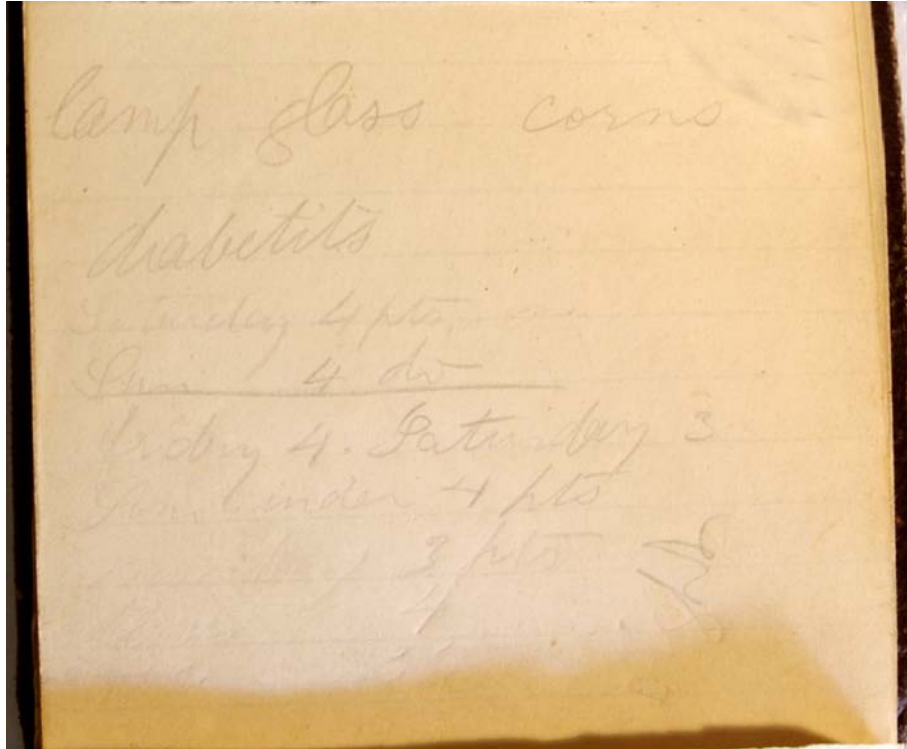 lamp glass corns
diabetits
Saturday 4 pts
Sun 4 do
friday 4. Saturday 3
Sun. under 4 pts
3 pts
4